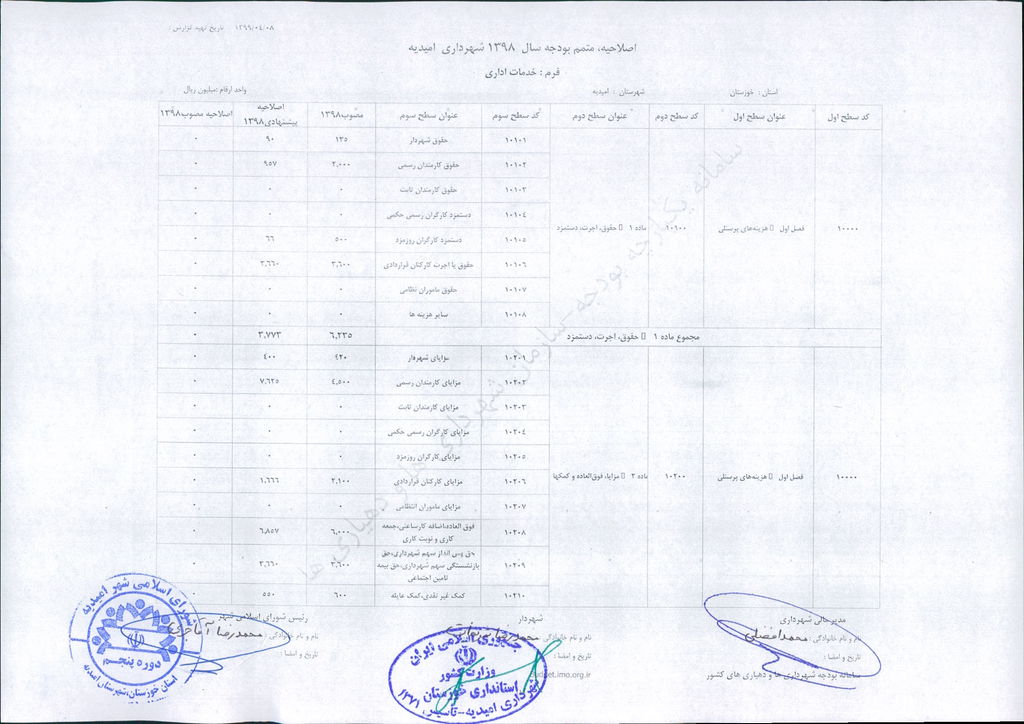 تاریخ تهیه گزارش : ۱۳۹۹/۰۴/۰۸
اصلاحیه، متمم بودجه سال ۱۳۹۸ شهرداری امیدیه
فرم : خدمات اداری
استان : خوزستان شهرستان : امیدیه واحد ارقام :میلیون ریال
کد سطح اول عنوان سطح اول کد سطح دوم عنوان سطح دوم کد سطح سوم عنوان سطح سوم مصوب۱۳۹۸ اصلاحیه پیشنهادی۱۳۹۸ اصلاحیه مصوب۱۳۹۸
۱۰۱۰۱ حقوق شهردار ۱۳۵ ۹۰ ۰
۱۰۱۰۲ حقوق کارمندان رسمی ۲,۰۰۰ ۹۵۷ ۰
۱۰۱۰۳ حقوق کارمندان ثابت ۰ ۰ ۰
۱۰۱۰۴ دستمزد کارگران رسمی حکمی ۰ ۰ ۰
۱۰۰۰۰ فصل اول هزینه‌های پرسنلی ۱۰۱۰۰ ماده ۱ حقوق، اجرت، دستمزد
۱۰۱۰۵ دستمزد کارگران روزمزد ۵۰۰ ۶۶ ۰
۱۰۱۰۶ حقوق یا اجرت کارکنان قراردادی ۳,۶۰۰ ۲,۶۶۰ ۰
۱۰۱۰۷ حقوق ماموران نظامی ۰ ۰ ۰
۱۰۱۰۸ سایر هزینه ها ۰ ۰ ۰
مجموع ماده ۱ حقوق، اجرت، دستمزد ۶,۲۳۵ ۳,۷۷۳ ۰
۱۰۲۰۱ مزایای شهردار ۴۲۰ ۴۰۰ ۰
۱۰۲۰۲ مزایای کارمندان رسمی ۴,۵۰۰ ۷,۶۲۵ ۰
۱۰۲۰۳ مزایای کارمندان ثابت ۰ ۰ ۰
۱۰۲۰۴ مزایای کارگران رسمی حکمی ۰ ۰ ۰
۱۰۲۰۵ مزایای کارگران روزمزد ۰ ۰ ۰
۱۰۰۰۰ فصل اول هزینه‌های پرسنلی ۱۰۲۰۰ ماده ۲ مزایا، فوق‌العاده و کمکها
۱۰۲۰۶ مزایای کارکنان قراردادی ۲,۱۰۰ ۱,۶۶۶ ۰
۱۰۲۰۷ مزایای ماموران انتظامی ۰ ۰ ۰
۱۰۲۰۸ فوق العاده،اضافه کارساعتی،جمعه کاری و نوبت کاری ۶,۰۰۰ ۶,۸۵۷ ۰
۱۰۲۰۹ حق پس انداز سهم شهرداری،حق بازنشستگی سهم شهرداری،حق بیمه تامین اجتماعی ۳,۶۰۰ ۳,۶۶۰ ۰
۱۰۲۱۰ کمک غیر نقدی،کمک عایله ۶۰۰ ۵۵۰
سامانه یکپارچه بودجه سازمان شهرداری ها و دهیاری ها
مدیرمالی شهرداری شهردار رئیس شورای اسلامی شهر
نام و نام خانوادگی : محمد افضلی نام و نام خانوادگی : محمدرضا نام و نام خانوادگی : محمدرضا
تاریخ و امضا : تاریخ و امضا : تاریخ و امضا :
سامانه بودجه شهرداری ها و دهیاری های کشور budget.imo.org.ir
جمهوری اسلامی ایران
وزارت کشور
استانداری خوزستان
شهرداری امیدیه-تاسیس ۱۳۷۱
شورای اسلامی شهر امیدیه
دوره پنجم
استان خوزستان،شهرستان امیدیه